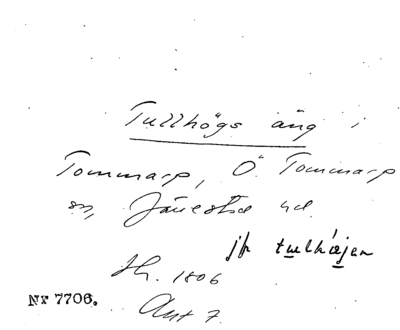 Tullhögs äng i
Tommarp, Ö. Tommarp
sn, Järrestad hd.
jfr tulhøjen
Sk. 1806
Nr 7706.
Akt 7